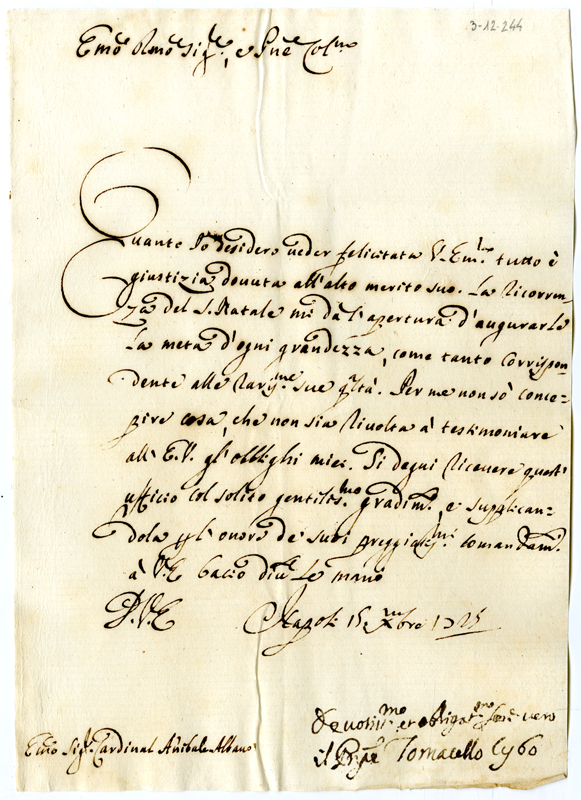 3-12-244
Emo Rmo Sigre, e Pne Colmo
Quanto Io desidero ueder felicitata V. Em. tutto è
giustizia douuta all'alto merito suo. La Ricorren-
za del S. Natale mi dà l'apertura d'augurarle
la meta d'ogni grandezza, come tanto Corrispon-
dente alle rarime sue qltà. Per me non sò conce-
pire cosa, che non sia Riuolta à testimoniare
all' E.V. gl'obblighi miei. Si degni Riceuere questo
ufficio col solito gentilismo gradimto, e supplican-
dola p l'onore de suoi preggiatmi comandamti
à V.E. bacio le mani
D.V.E
Napoli 15 Xbre 1725
Deuotismo et obligatmo seruo uero
il Pnpe Tomacello Cybo
Emo Sigr Cardinal Anibale Albano